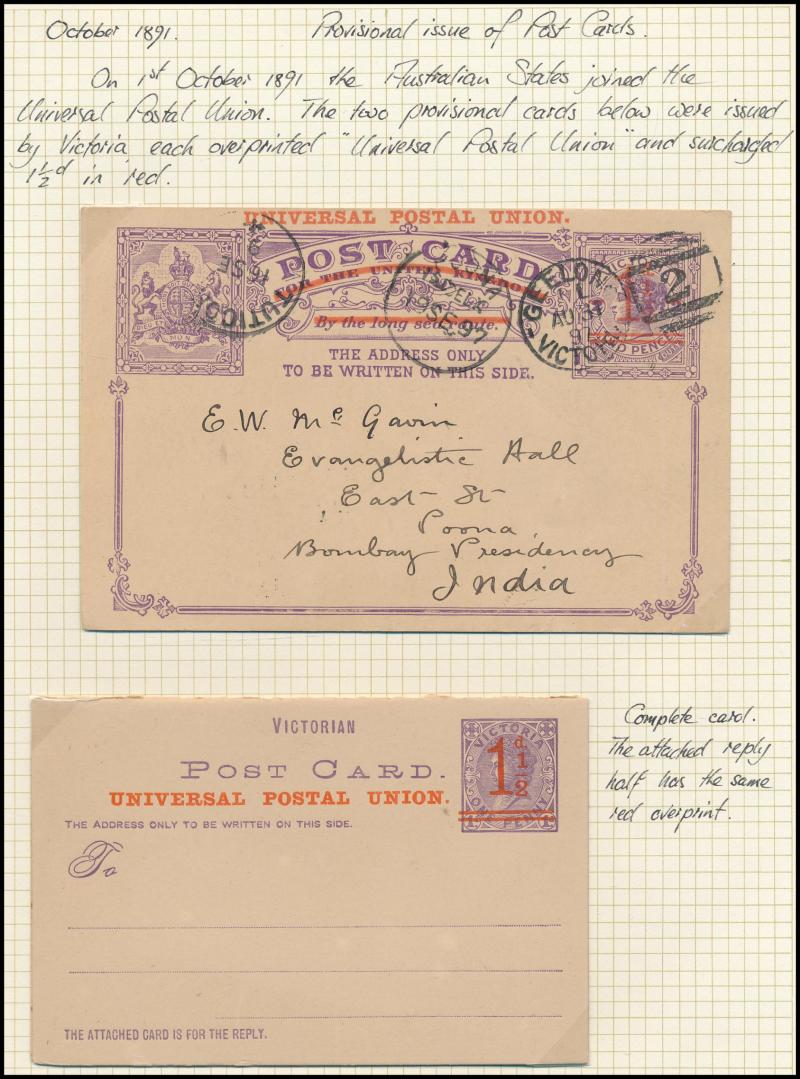 October 1891. Provisional issue of Post Cards.
On 1st October 1891 the Australian States joined the
Universal Postal Union. The two provisional cards below were issued
by Victoria each overprinted "Universal Postal Union" and surcharged
1½d in red.
UNIVERSAL POSTAL UNION.
POST CARD
FOR THE UNITED KINGDOM
By the long sea route.
THE ADDRESS ONLY
TO BE WRITTEN ON THIS SIDE.
MON
TUTICO
SE
19 SE 97
GEELONG
AU 31
97
VICTORIA
2
PENCE
E.W. Mc Gavin
Evangelistic Hall
East St
Poona
Bombay Presidency
India
VICTORIAN
POST CARD.
UNIVERSAL POSTAL UNION.
THE ADDRESS ONLY TO BE WRITTEN ON THIS SIDE.
To
THE ATTACHED CARD IS FOR THE REPLY.
VICTORIA
1½d
ONE PENNY
Complete card.
The attached reply
half has the same
red overprint.